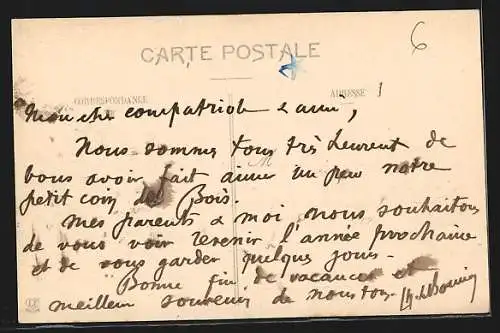 6
CARTE POSTALE
CORRESPONDANCE
ADRESSE
Mon cher compatriote & ami,
Nous sommes tous très heureux de
vous avoir fait aimer un peu notre
petit coin des Bois.
Mes parents & moi nous souhaitons
de vous voir revenir l'année prochaine
et de vous garder quelques jours.
Bonne fin de vacances et
meilleur souvenir de nous tous.